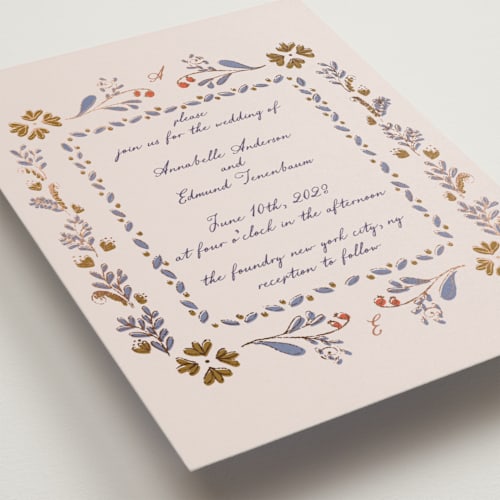 A
please
join us for the wedding of
Annabelle Anderson
and
Edmund Tenenbaum
June 10th, 2023
at four o'clock in the afternoon
the foundry new york city, ny
reception to follow
E